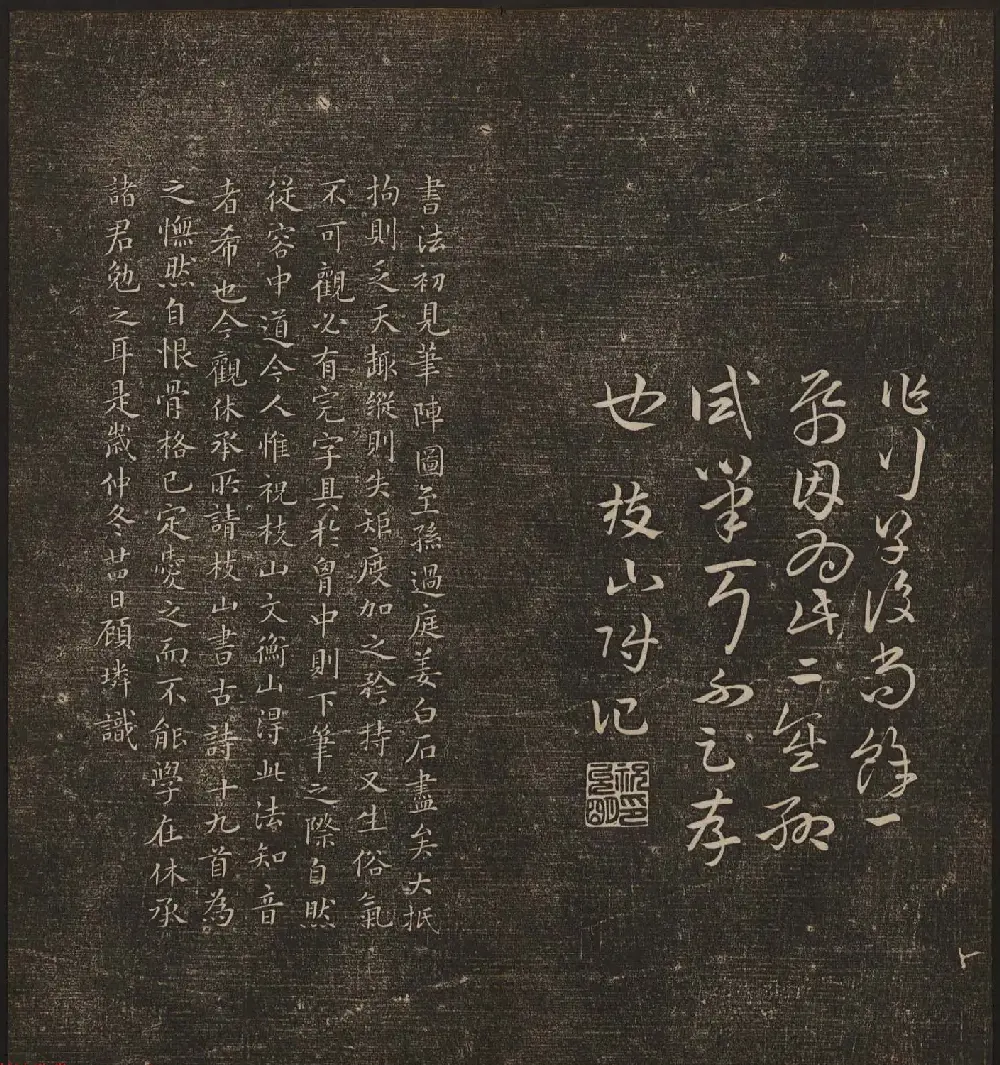 作行草後尚餘一
紙因為此二空聊
試筆耳不足存
也 枝山附记
祝允明印
書法初見筆陣圖至孫過庭姜白石盡矣大抵
拘則乏天趣縱則失矩度加之矜持又生俗氣
不可觀必有完字具於胷中則下筆之際自然
從容中道今人惟祝枝山文衡山得此法知音
者希也今觀休承所請枝山書古詩十九首為
之憮然自恨骨格已定愛之而不能學在休承
諸君勉之耳是歲仲冬廿日顾璘識